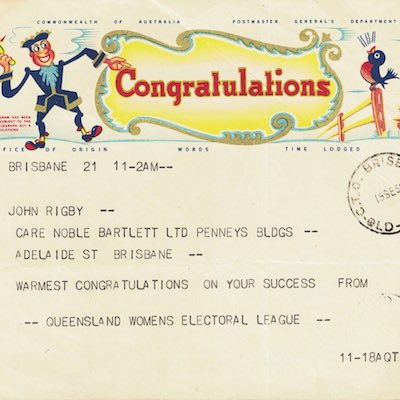 COMMONWEALTH OF AUSTRALIA POSTMASTER GENERAL'S DEPARTMENT
Congratulations
OFFICE OF ORIGIN WORDS TIME LODGED
BRISBANE 21 11-2AM--
JOHN RIGBY --
CARE NOBLE BARTLETT LTD PENNEYS BLDGS --
ADELAIDE ST BRISBANE --
WARMEST CONGRATULATIONS ON YOUR SUCCESS FROM
-- QUEENSLAND WOMENS ELECTORAL LEAGUE --
11-18AQT
C.T.O. BRISB
19SE
QLD